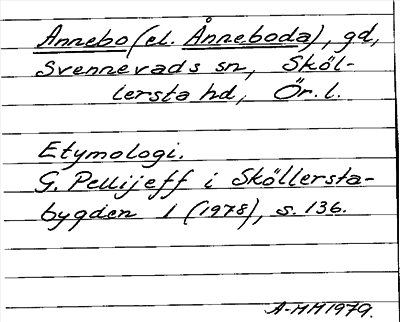 Annebo (el. Ånneboda), gd,
Svennevads sn, Sköl-
lersta hd, Ör. l.
Etymologi.
G. Pellijeff i Sköllersta-
bygden 1 (1978), s. 136.
A-MM1979.